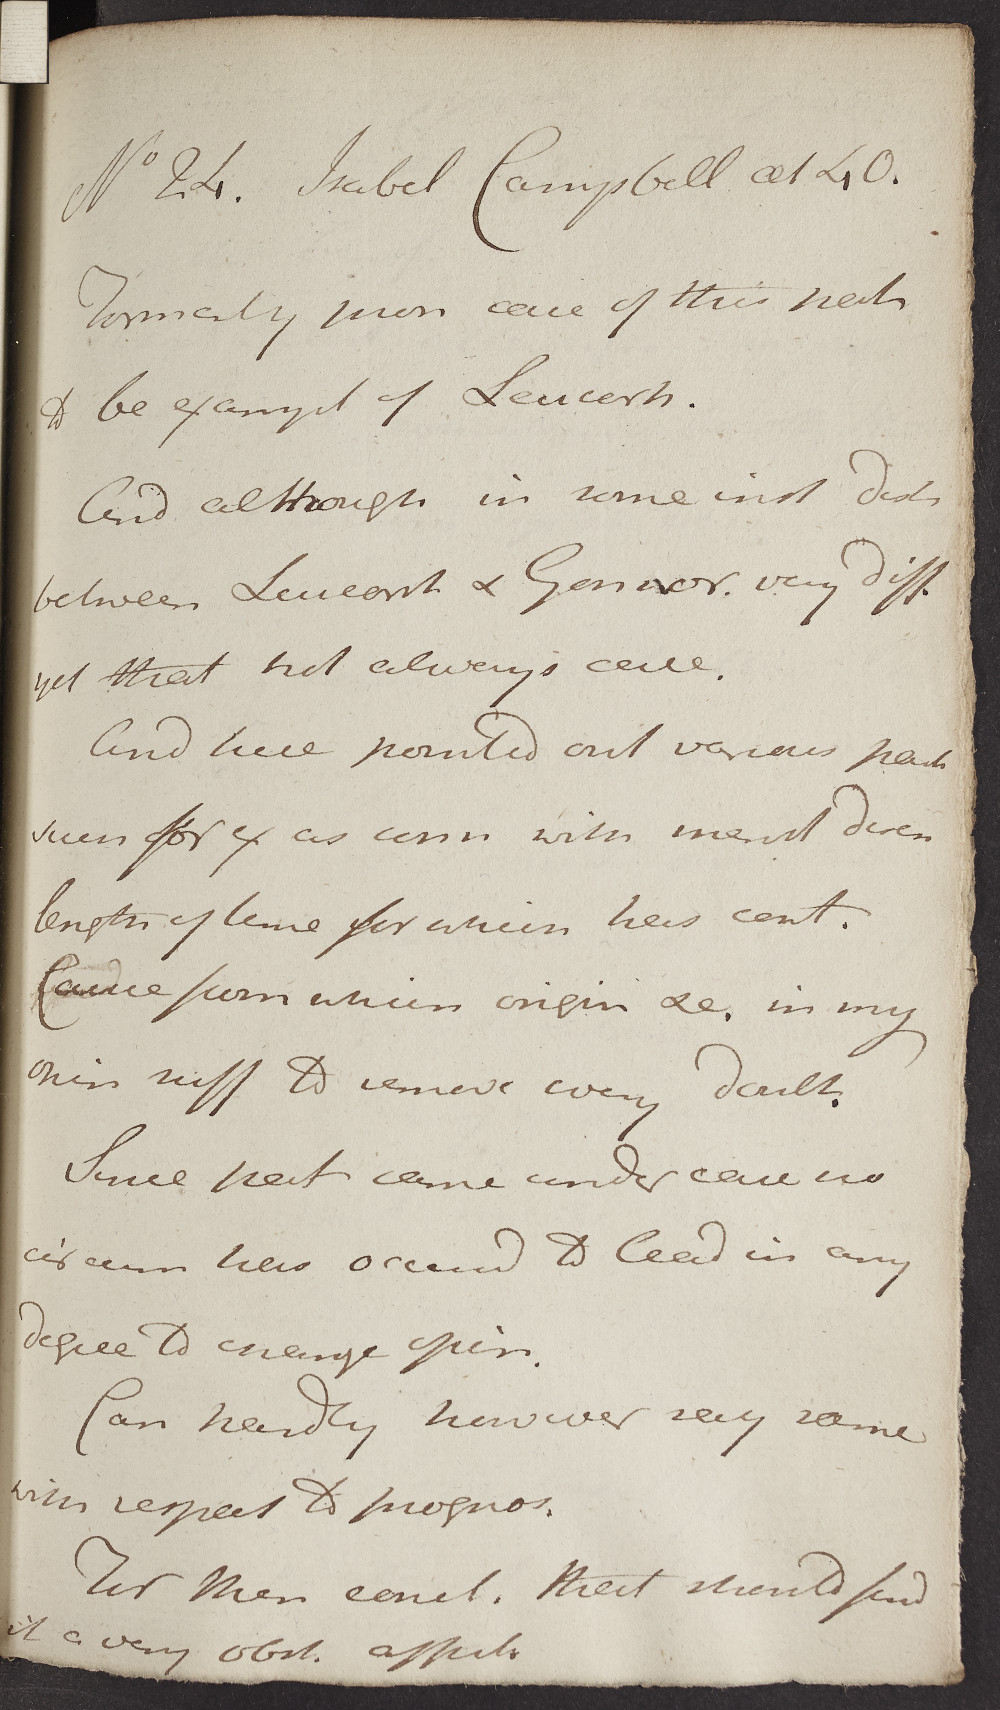 No 24. Isabel Campbell aet 40.
Formerly pron case of this path
to be exampl of Leucorh.
And although in some inst dist
between Leucorrh & Gonnor. very diff.
yet that not always case.
And here pointed out various part
such for ex as conn with menst disch
length of time for which has cont.
Cause from which origin &c. in my
opin suff to remove every doubt.
Since pat came under care no
circum has occurred to lead in any
degree to change opin.
Can hardly however say same
with respect to prognos.
For then concl. that should find
it a very obst. affect